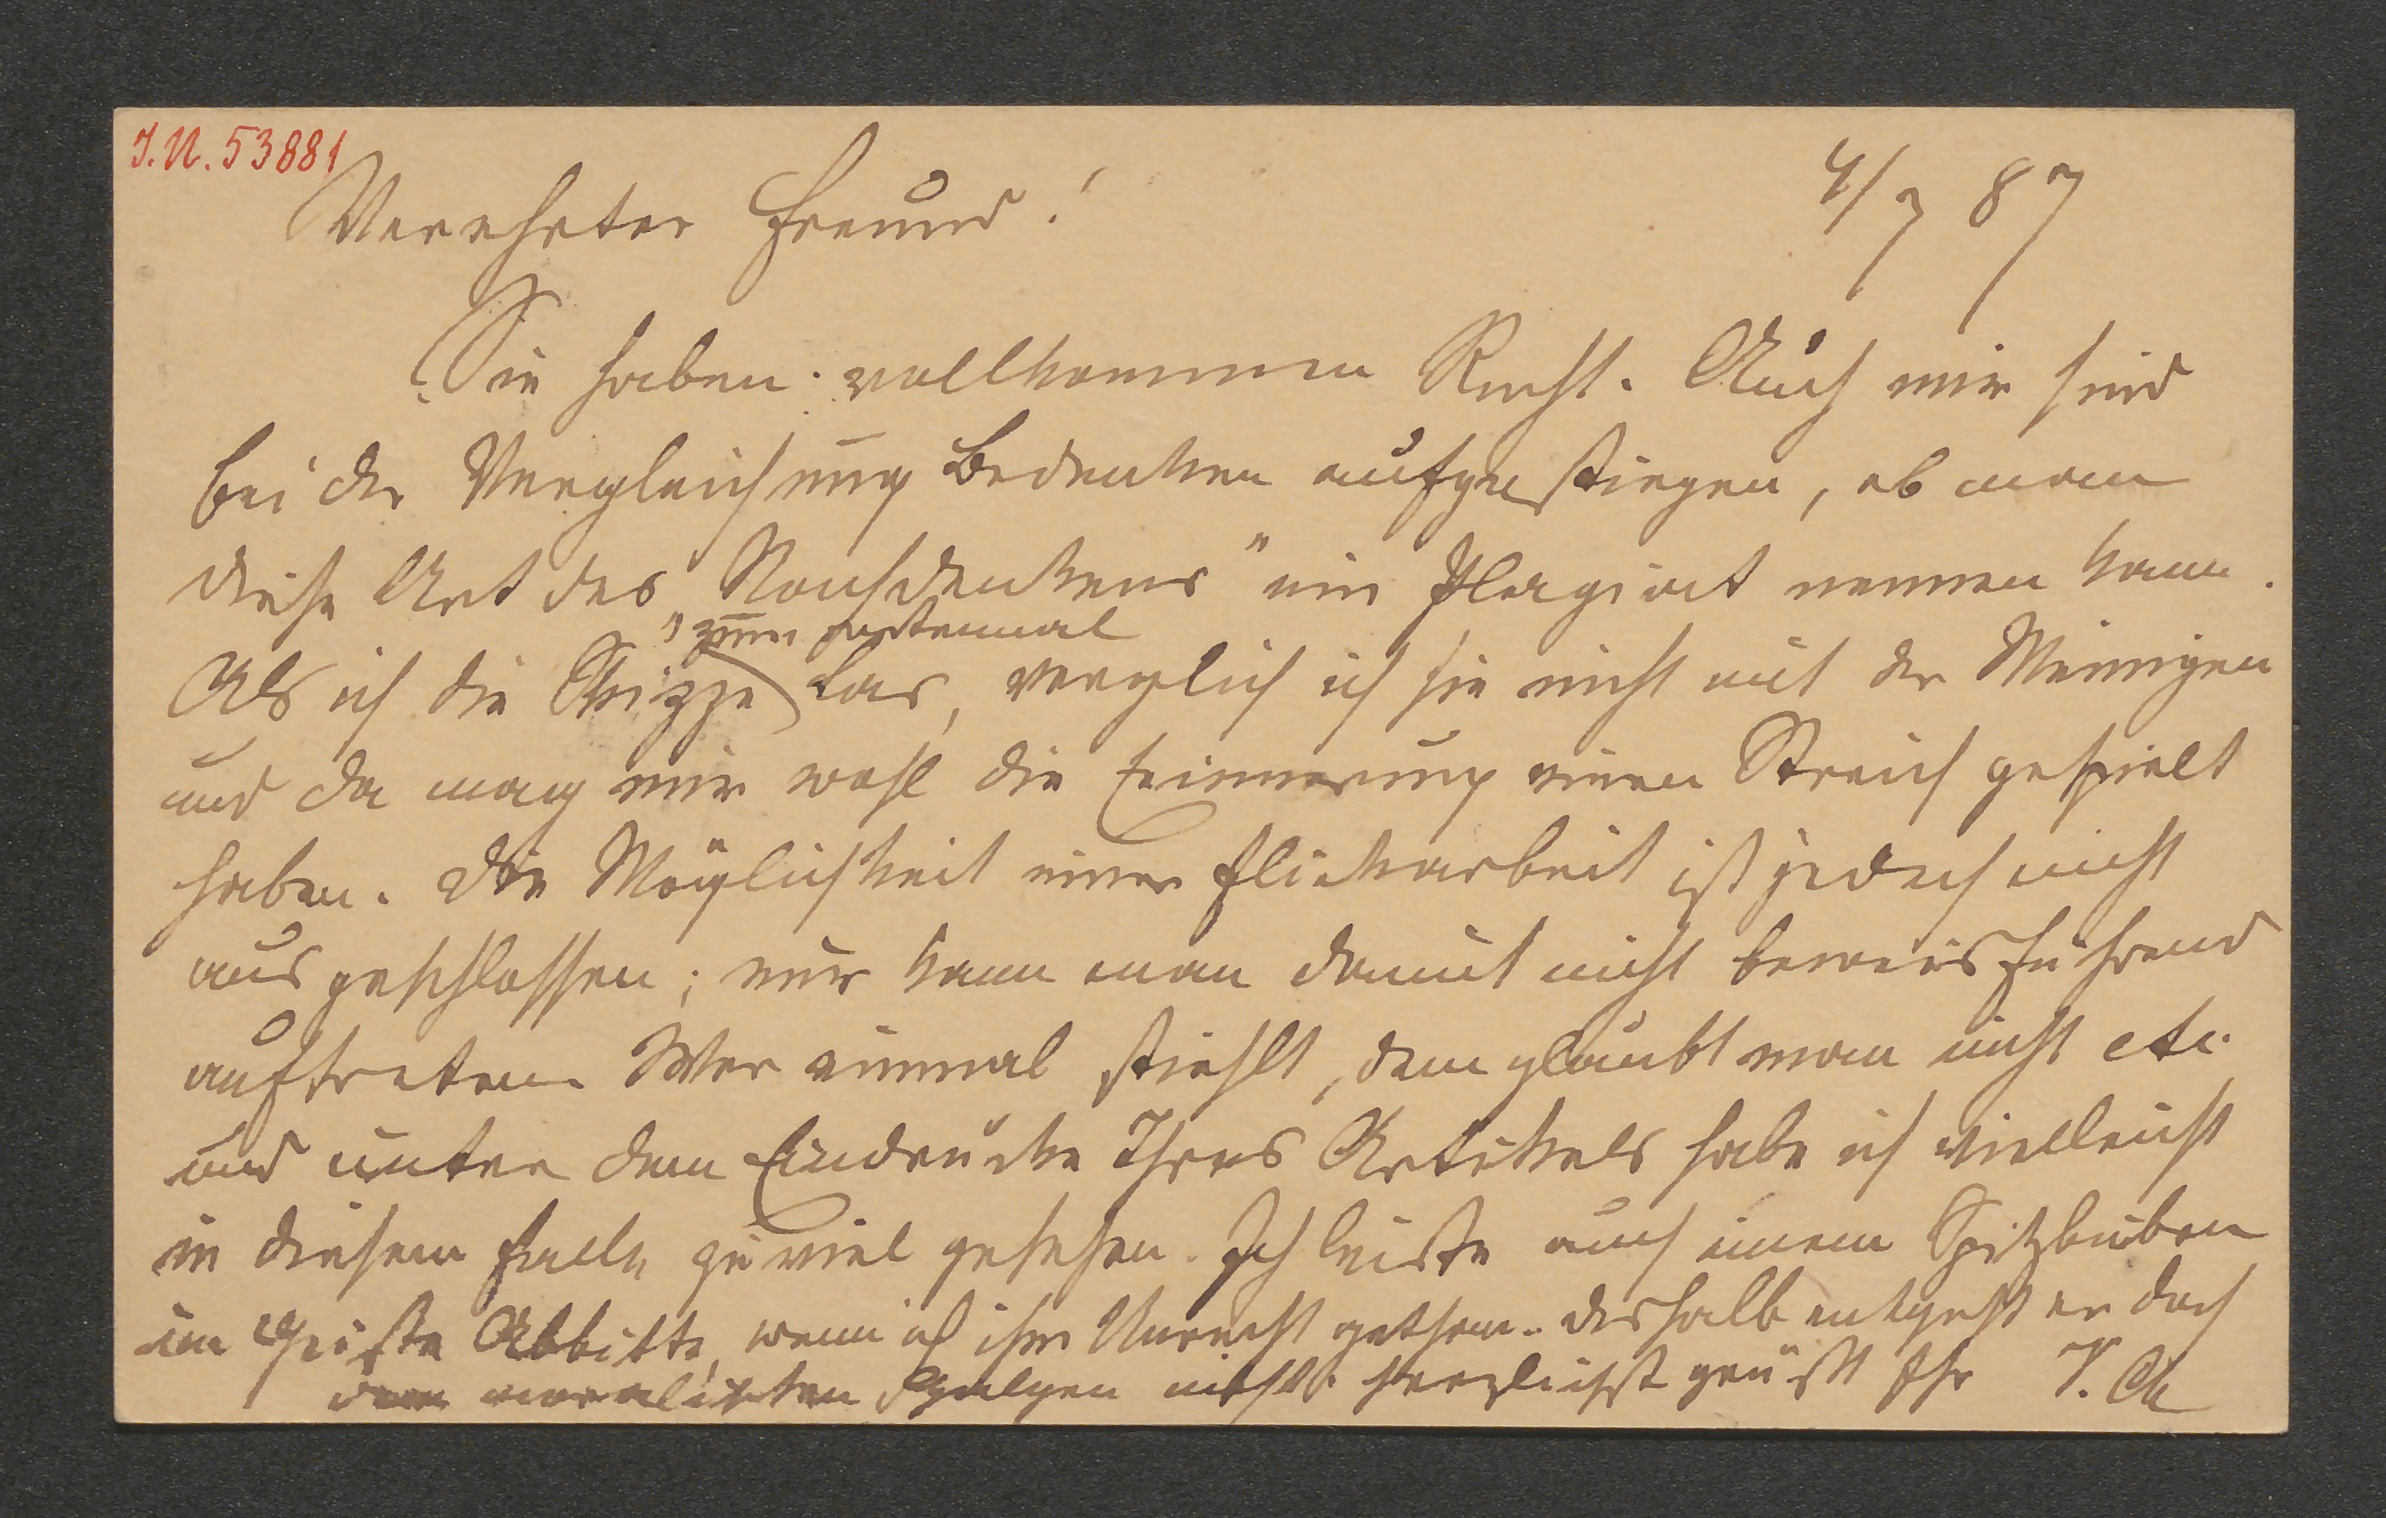 J.N. 53881
4/7 87
Verehrter Freund!
Sie haben vollkommen Recht. Auch mir sind
bei der Vergleichung Bedenken aufgestiegen, ob man
diese Art des „Nachdenkens" ein Plagiat nennen kann.
zum erstenmal
Als ich die Skizze las, verglich ich sie nicht mit der Meinigen
und da mag mir wohl die Erinnerung einen Streich gespielt
haben. Die Möglichkeit einer Flickarbeit ist jedoch nicht
ausgeschlossen; nur kann man damit nicht beweisführend
auftreten. Wer einmal stiehlt, dem glaubt man nicht etc.
und unter dem Eindrucke Ihres Artikels habe ich vielleicht
in diesem Falle zu viel gesehen. Ich leiste auch einem Spitzbuben
im Geiste Abbitte, wenn ich ihm Unrecht gethan. Deshalb entgeht er doch
dem Galgen nicht. Herzlichst grüßt Ihr V. Ch